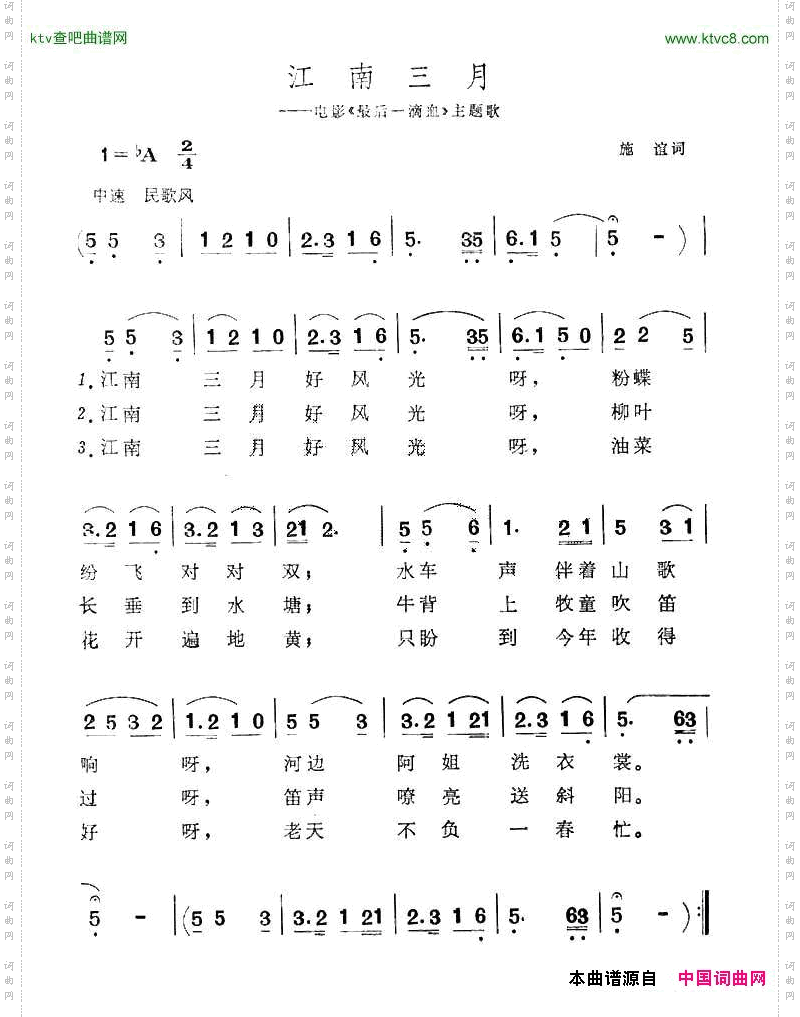 ktv查吧曲谱网
www.ktvc8.com
江南三月
——电影《最后一滴血》主题歌
1=♭A 2/4
施谊词
中速 民歌风
(5 5 3 | 1 2 1 0 | 2.3 1 6 | 5. 35 | 6.1 5 | 5 - ) |
5 5 3 | 1 2 1 0 | 2.3 1 6 | 5. 35 | 6.1 5 0 | 2 2 5 |
1.江南 三月好风光 呀，粉蝶
2.江南 三月好风光 呀，柳叶
3.江南 三月好风光 呀，油菜
3.2 1 6 | 3.2 1 3 | 21 2. | 5 5 6 | 1. 21 | 5 31 |
纷飞对对双；水车声伴着山歌
长垂到水塘；牛背上牧童吹笛
花开遍地黄；只盼到今年收得
2 5 3 2 | 1.2 1 0 | 5 5 3 | 3.2 1 21 | 2.3 1 6 | 5. 63 |
响呀，河边阿姐洗衣裳。
过呀，笛声嘹亮送斜阳。
好呀，老天不负一春忙。
5 - | (5 5 3 | 3.2 1 21 | 2.3 1 6 | 5. 63 | 5 - ) :||
本曲谱源自 中国词曲网